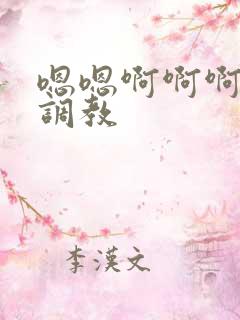 嗯嗯啊啊啊
調教
李漢文